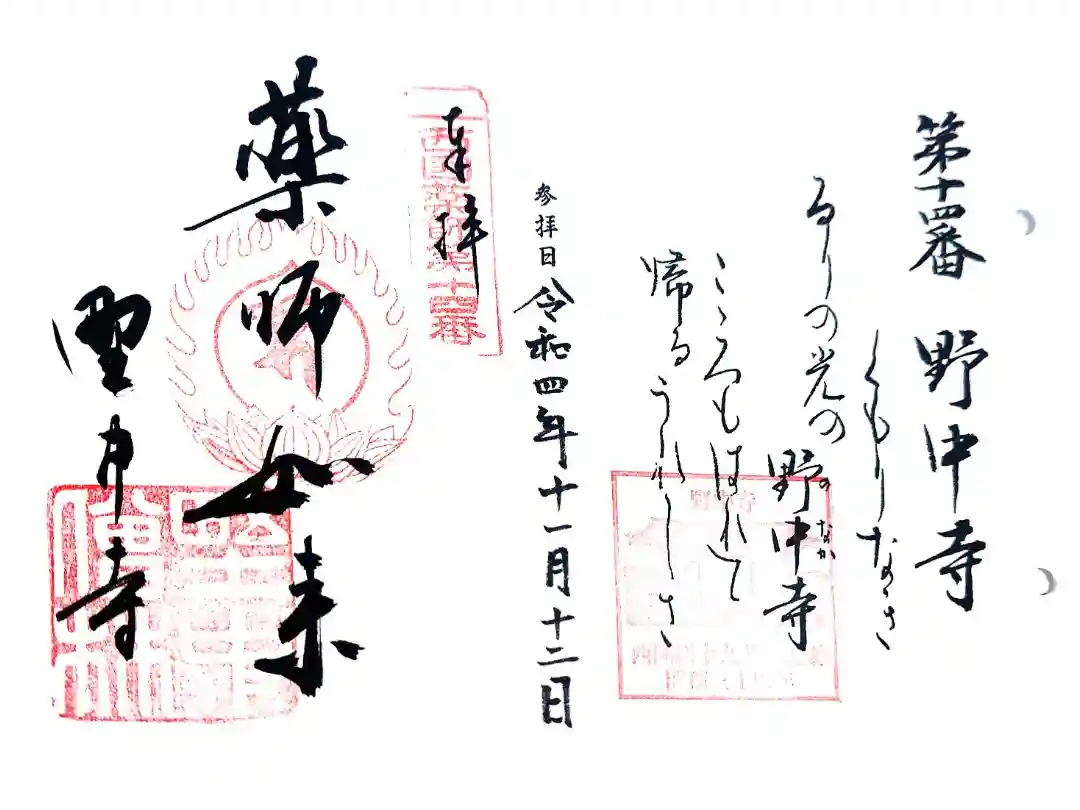 第十四番 野中寺
くもりなき
るりの光の 野中寺
のなか
こころもはれて
帰るうれしさ
参拝日 令和四年十一月十二日
奉拝
西国薬師第十四番
薬師如来
野中寺